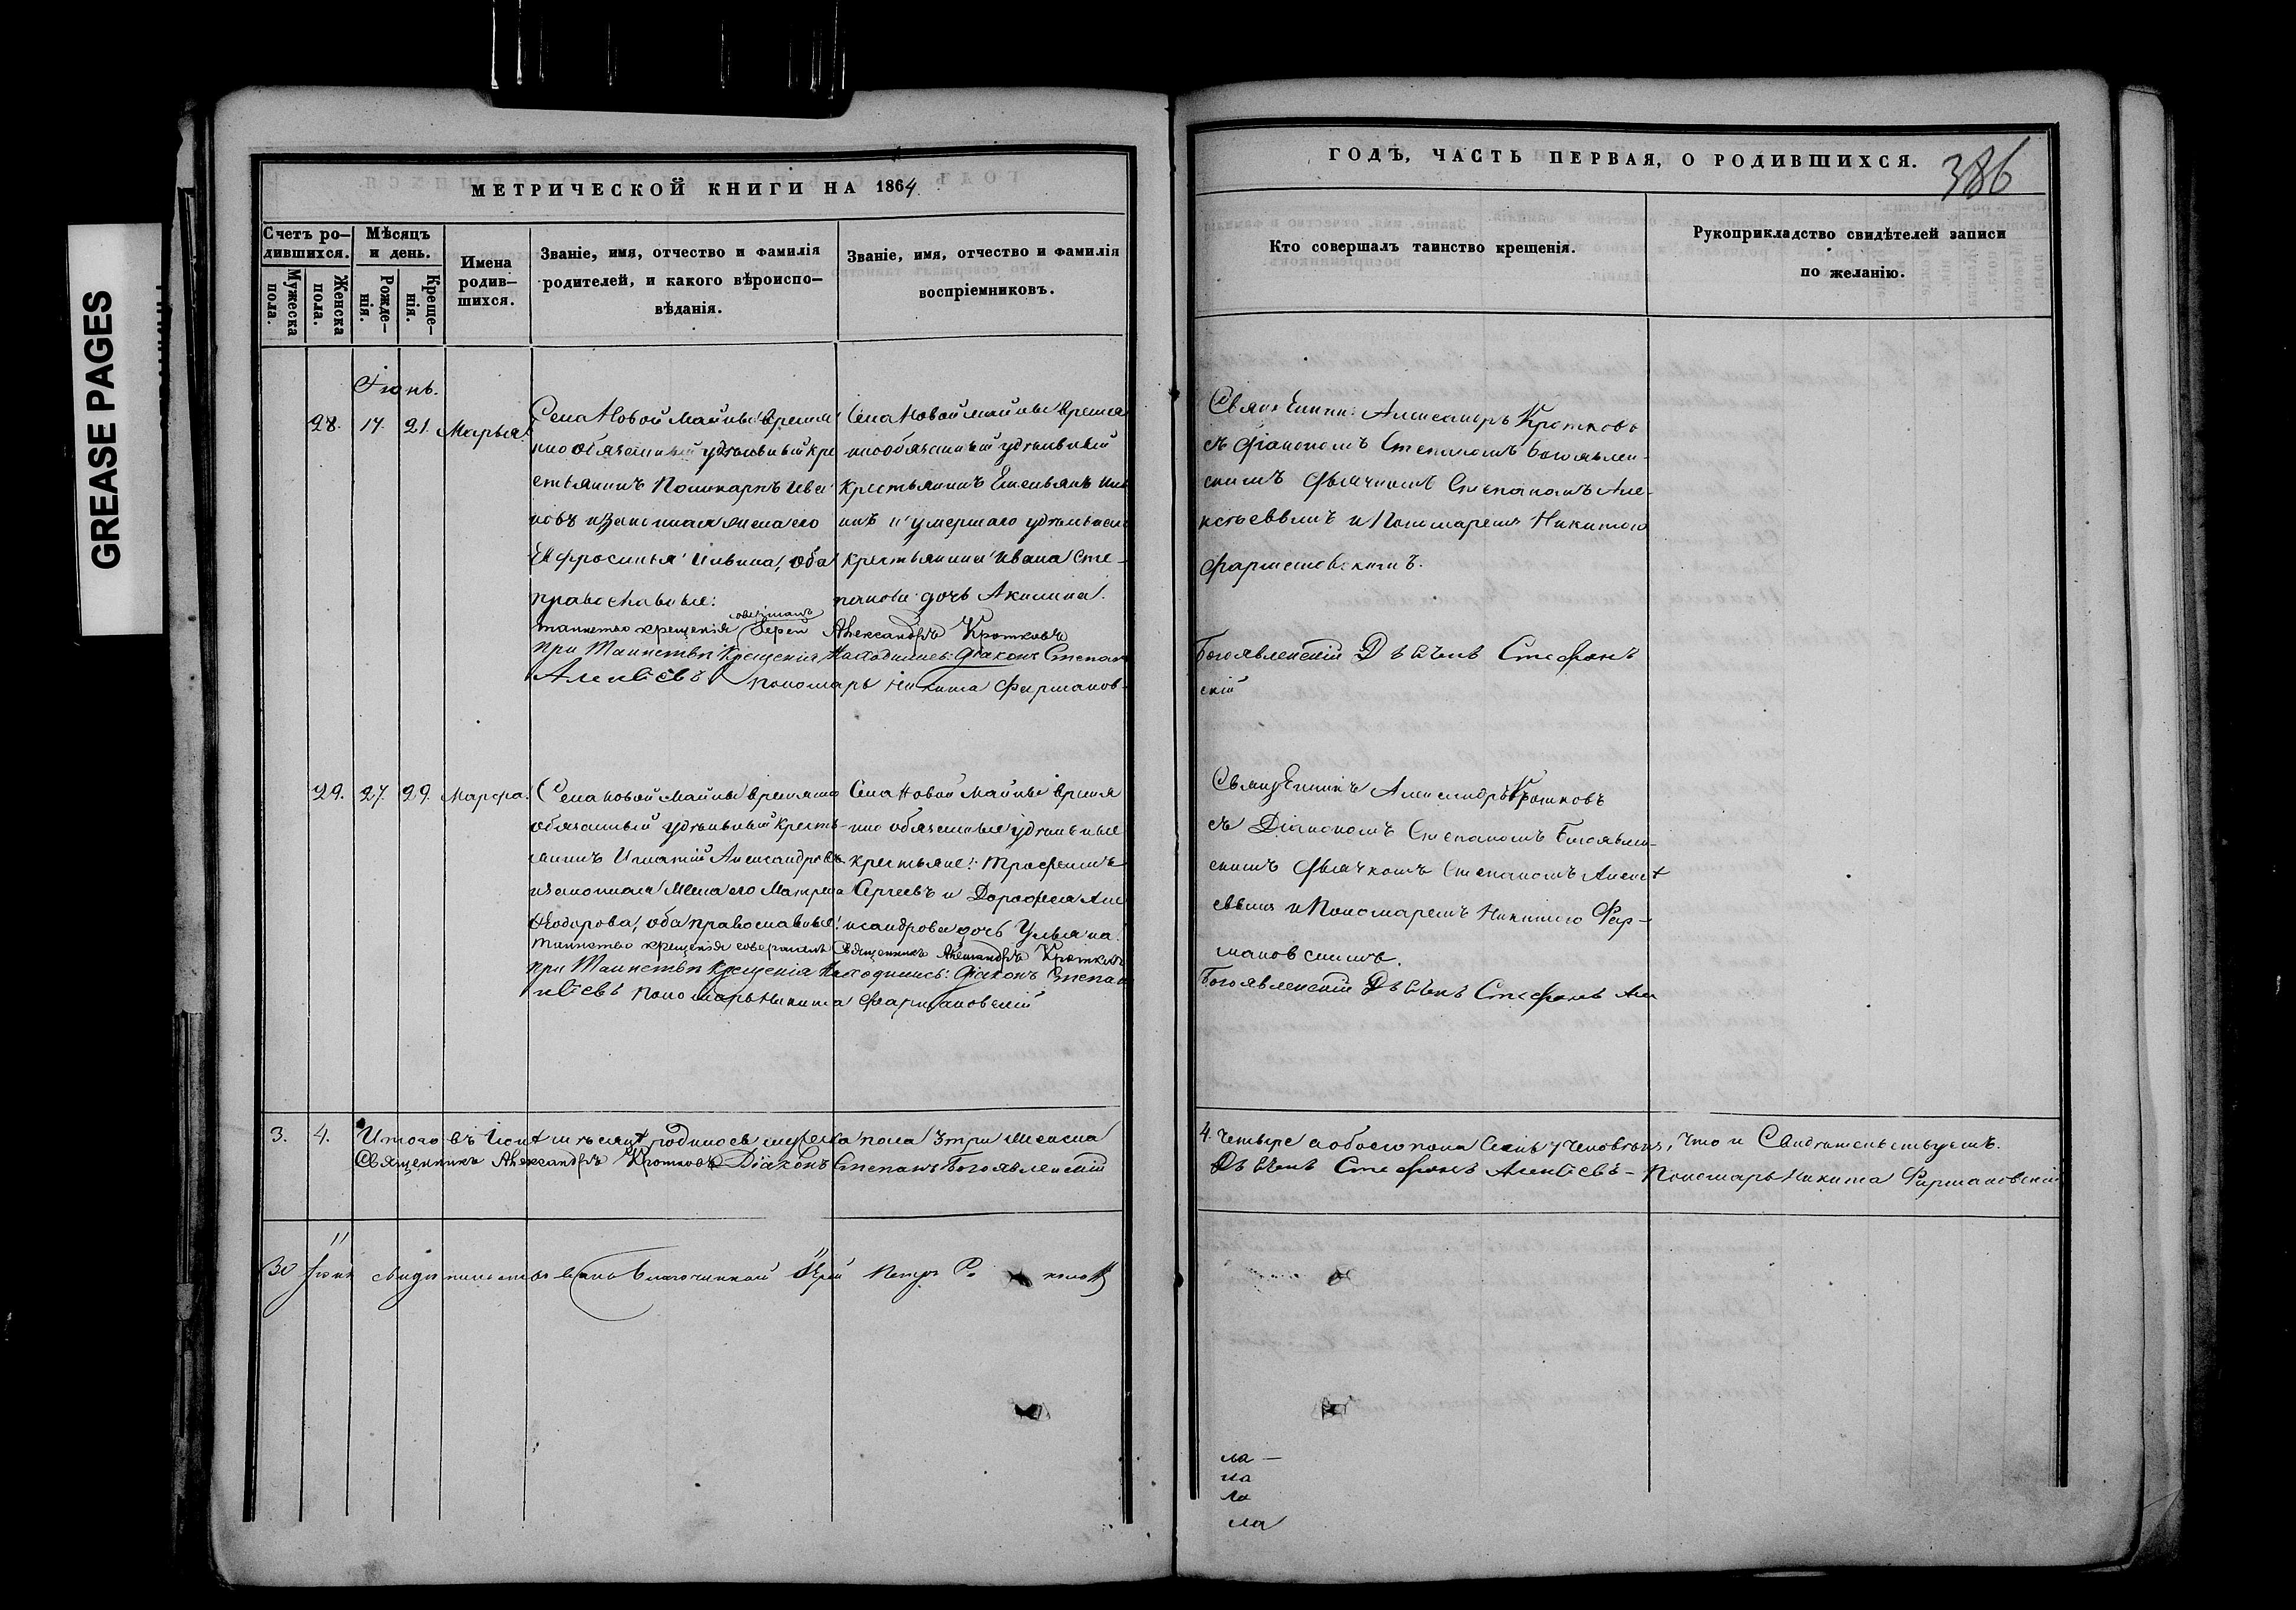 GREASE PAGES
МЕТРИЧЕСКОЙ КНИГИ НА 1864
Счетъ ро-
дившихся.
Мужеска
пола.
Женска
пола.
Мѣсяцъ
и день.
Рожде-
нія.
Креще-
нія.
Имена
родив-
шихся.
Званіе, имя, отчество и фамилія
родителей, и какого вѣроиспо-
вѣданія.
Званіе, имя, отчество и фамилія
воспріемниковъ.
Іюнь.
28. 17. 21. Марья.
Села Новой Майны Времен
но обязанный удѣльный кре
стьянинъ Поликарпъ Ива
новъ и законная жена его
Евфросинья Ильина, оба
православные.
Села Новой Майны Времен
но обязанный удѣльный
крестьянинъ Емельянъ
и умершаго удѣльнаго
крестьянина Ивана Сте-
панова дочь Акилина.
совершалъ
Таинство крещенія Іерей Александръ Кротковъ
При Таинствѣ Крещенія Находились: Діаконъ Степанъ
Алексѣевъ Пономарь Никита Фармаков-
29. 27. 29. Марфа.
Села Новой Майны временно
обязанный удѣльный кресть-
янинъ Игнатій Александровъ
и законная жена его Матрена
Ѳеодорова, оба православные.
Села Новой Майны времен
но обязанные удѣльные
крестьяне: Трофимъ
Сергеевъ и Дорофея Але
ксандрова дочь Ульяна.
Таинство крещенія совершалъ Священникъ Александръ Кротковъ
При Таинствѣ Крещенія Находились: Діаконъ Степан
ксѣевъ Пономарь Никита Фармаковскій
3. 4. Итого въ Іюнѣ мѣсяцѣ родилось мужеска пола 3 три женска
Священникъ Александръ Кротковъ Діаконъ Степанъ Богоявленскій
30 Іюня свидѣтельствовано Благочинной Іерей Петръ
ГОДЪ, ЧАСТЬ ПЕРВАЯ, О РОДИВШИХСЯ.
386
Кто совершалъ таинство крещенія.
Рукоприкладство свидѣтелей записи
по желанію.
Священник: Александръ Кротковъ
съ Діакономъ Степаномъ Богоявлен-
скимъ Дьячкомъ Степаномъ Але-
ксѣеввымъ и Пономаремъ Никитою
Фармаковскимъ.
Богоявленскій Дьячекъ Стефанъ
скій
Священникъ Александръ Кротковъ
съ Діакономъ Степаномъ Богоявлен-
скимъ Дьячкомъ Степаномъ Алексѣ
евымъ и Пономаремъ Никитою Фар-
маковскимъ.
Богоявленскій Дьячекъ Стефанъ Але
4. Четыре а обоего пола Семь 7 человѣкъ, что и Свидѣтельствуемъ.
Дьячекъ Стефанъ Алексѣевъ - Пономарь Никита Фармаковскій
ла -
на
ла
ла